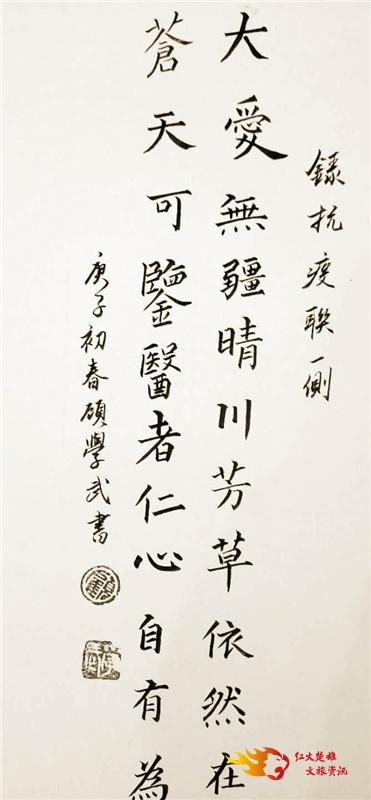 錄抗疫聯一側
大愛無疆晴川芳草依然在
蒼天可鑒醫者仁心自有為
庚子初春顧學武書
红火楚雄
文旅资讯